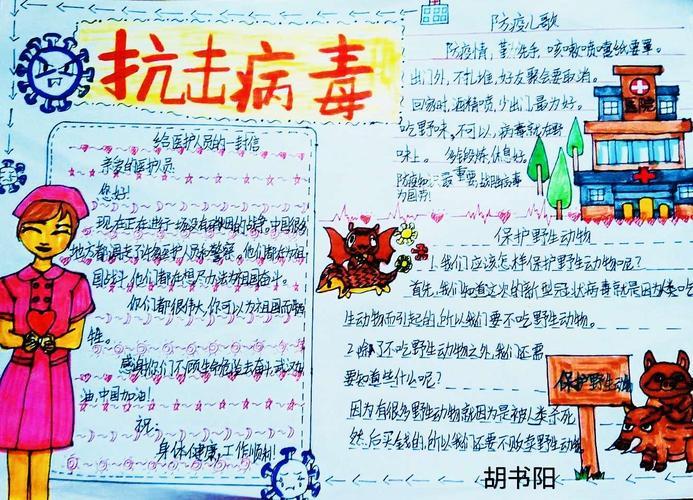 抗击病毒
给医护人员的一封信
亲爱的医护人员
您好!
现在正在进行一场没有硝烟的战争,中国很多
地方都调走了许多医护人员和警察,他们都在为祖
国战斗,他们都在想尽办法为祖国奋斗。
你们都很伟大,你可以为祖国而牺
牲。
感谢你们不顾生命危险去奋斗,武汉加
油,中国加油!
祝:
身体健康,工作顺利!
防疫儿歌
防疫情,勤洗手,咳嗽喷嚏纸要罩。
出门外,不扎堆,好友聚会要取消。
回家时,酒精喷,少出门最为好。
吃野味,不可以,病毒就在野
味上。多锻炼,休息好。
防疫知识最重要,战胜病毒
为国劳!
医院
保护野生动物
1.我们应该怎样保护野生动物呢?
首先,我们知道这次的新型冠状病毒就是因为人类吃
生动物而引起的,所以我们要不吃野生动物。
2.除了不吃野生动物之外,我们还需
要知道些什么呢?
因为有很多野生动物就因为是被人类杀死
然后买钱的,所以我们还要不贩卖野生动物
保护野生动物
胡书阳